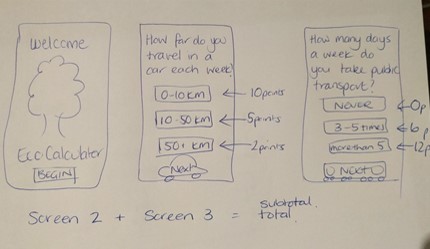 Welcome
Eco Calculator
BEGIN
How far do you
travel in a
car each week?
0-10 km ← 10 points
10-50 km ← 5 points
50+ km ← 2 points
Next
How many days
a week do
you take public
transport?
NEVER ← 0p
3-5 times ← 6p
more than 5 ← 12p
NEXT
Screen 2 + Screen 3 = subtotal
total.